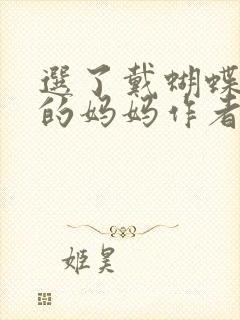 選了戴蝴蝶
的妈妈作者
姬昊